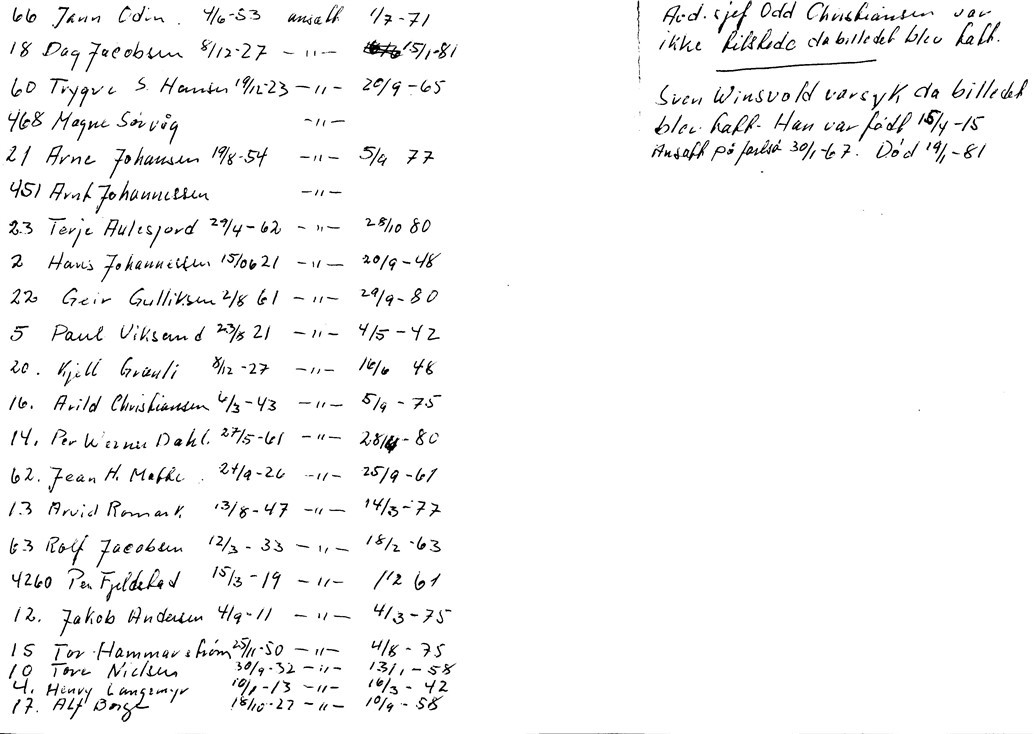 66 Jann Odin. 4/6-53 ansatt 1/7-71
18 Dag Jacobsen 8/12-27 -"- 15/1-81
60 Trygve S. Hansen 19/12-23 -"- 20/9-65
468 Magne Sørvåg -"-
21 Arne Johansen 19/8-54 -"- 5/9 77
451 Arnt Johannessen -"-
23 Terje Aulesjord 29/4-62 -"- 28/10 80
2 Hans Johannessen 15/06 21 -"- 20/9-48
22 Geir Gulliksen 2/8 61 -"- 29/9-80
5 Paul Viksand 23/8 21 -"- 4/5-42
20. Kjell Granli 8/12-27 -"- 16/6 48
16. Arild Christiansen 6/3-43 -"- 5/9-75
14. Per Werner Dahl. 27/5-61 -"- -80
62. Jean H. 24/9-26 -"- 25/9-61
13 Arvid Romark 13/8-47 -"- 14/3-77
63 Rolf Jacobsen 12/3-33 -"- 18/2-63
4260 Per Fjeldstad 15/3-19 -"- 1/12 61
12. Jakob Andersen 4/9-11 -"- 4/3-75
15 Tor Hammarstrøm 25/11-50 -"- 4/8-75
10 Tore Nielsen 30/9-32 -"- 13/1-58
4. Henry Langemyr 10/1-13 -"- 16/3-42
17. Alf Borge 18/10-27 -"- 10/9-58
Avd. sjef Odd Christiansen var
ikke tilstede da billedet blev tatt.
Sven Winsvold var syk da billedet
blev tatt. Han var født 15/4-15
Ansatt på 30/1-67. Død 19/1-81